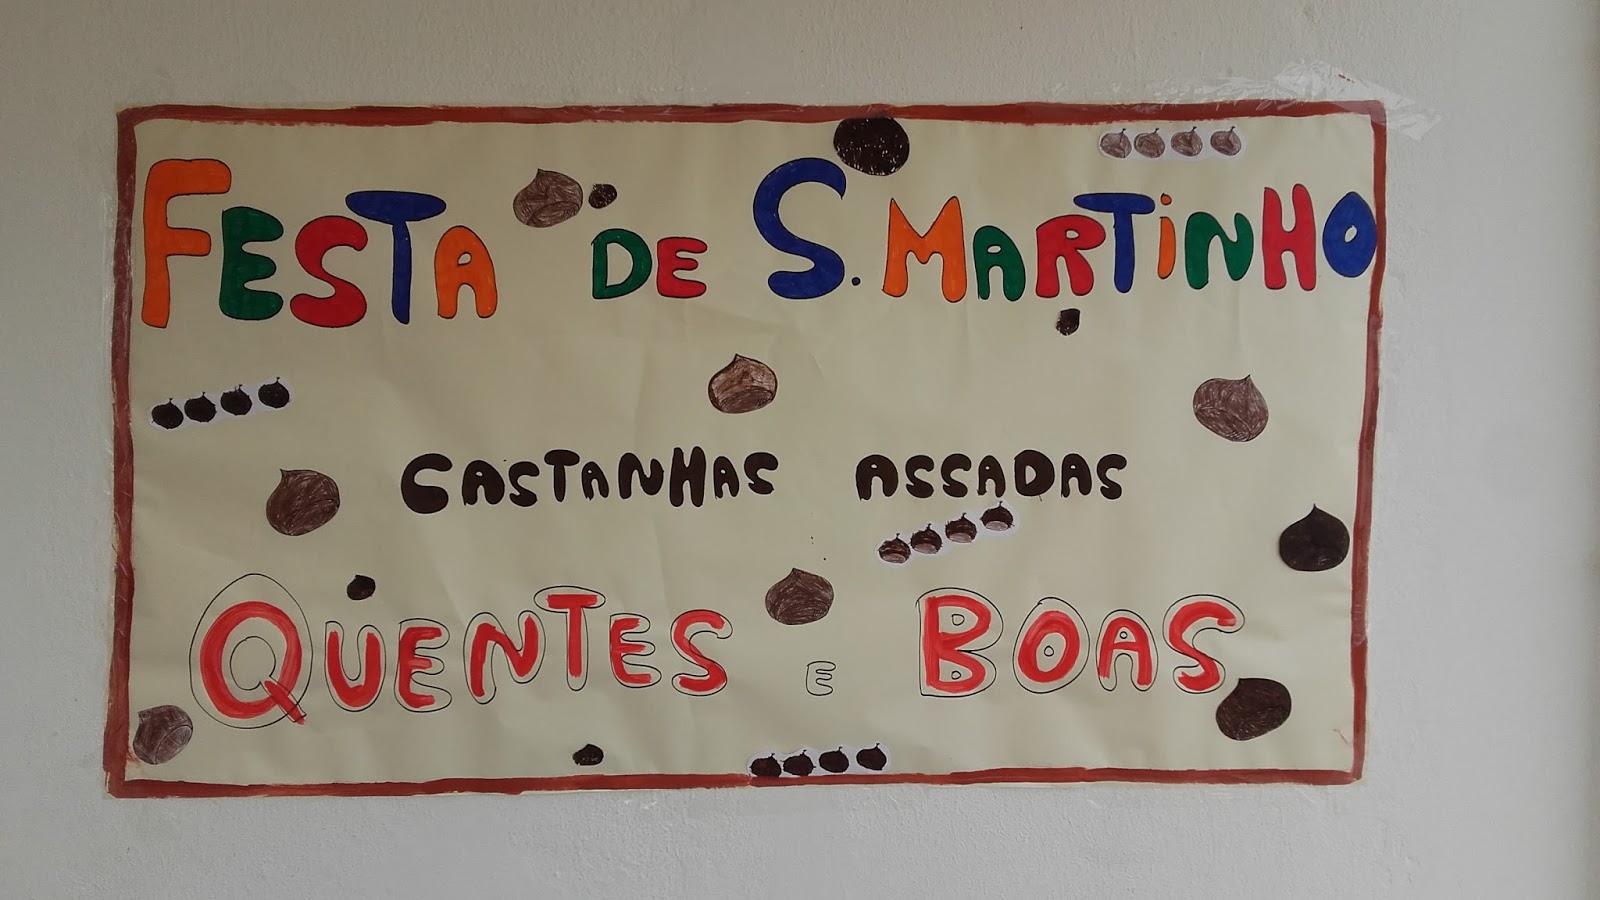 FESTA DE S. MARTINHO
CASTANHAS ASSADAS
QUENTES E BOAS